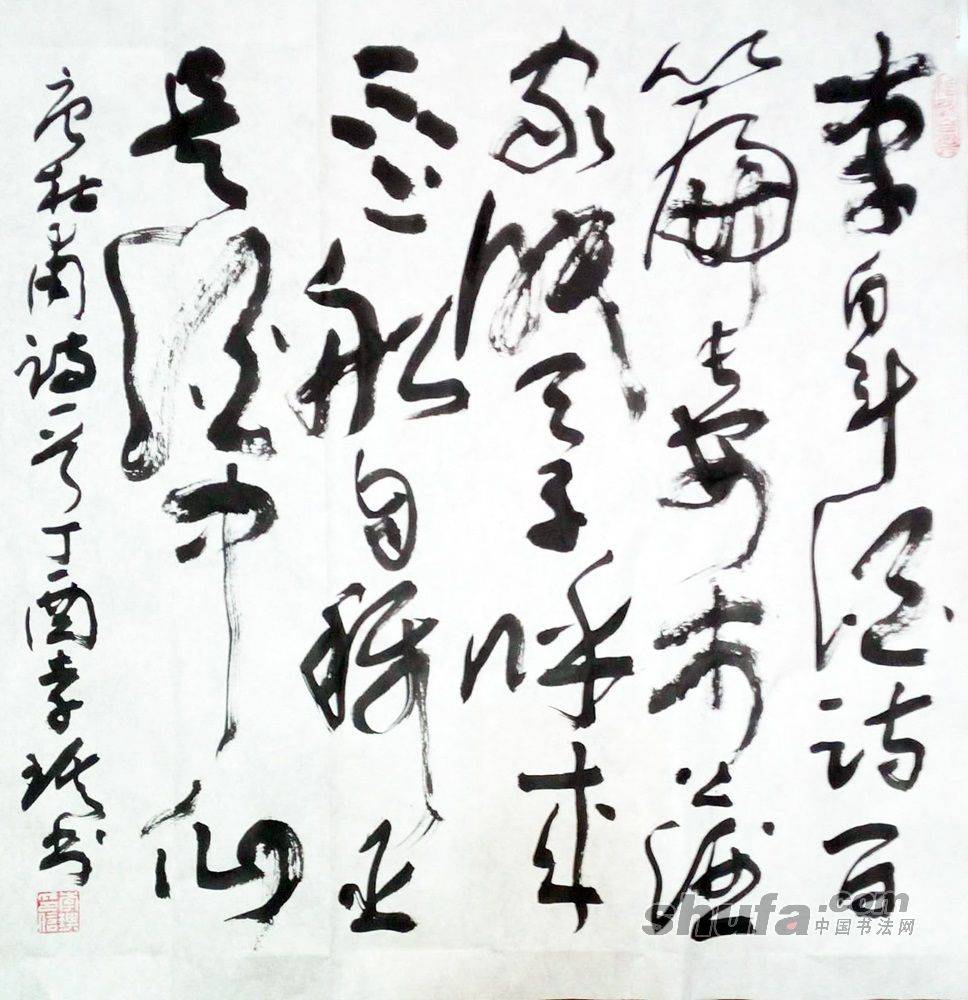 李白斗酒诗百
篇长安市上酒
家眠天子呼来
不上船自称臣
是酒中仙
唐杜甫诗一首丁酉李书
shufa.com
中国书法网